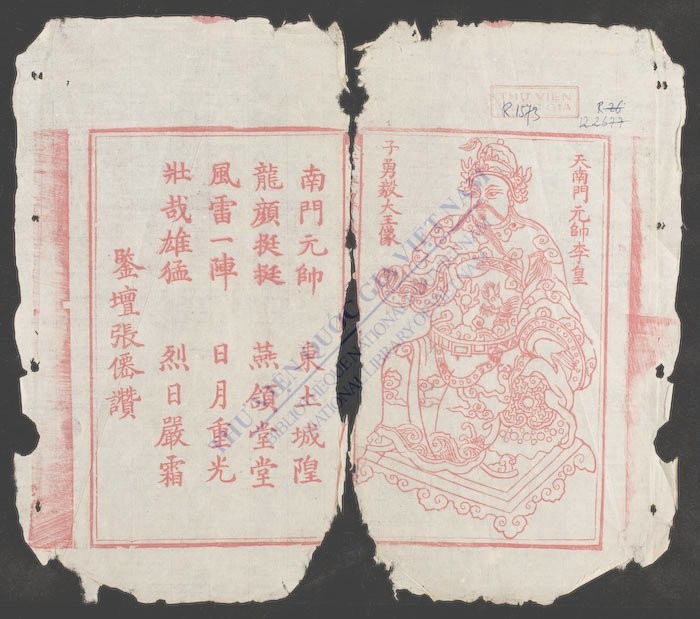 天南門元帥李皇
子勇毅大王像
南門元帥 東土城隍
龍顏挺挺 燕頷堂堂
風雷一陣 日月重光
壯哉雄猛 烈日嚴霜
鑒壇張僊讚
THƯ VIỆN
R.1573
R.26
R.2677
THƯ VIỆN QUỐC GIA VIỆT NAM
BIBLIOTHEQUE NATIONALE DU VIETNAM
NATIONAL LIBRARY OF VIETNAM